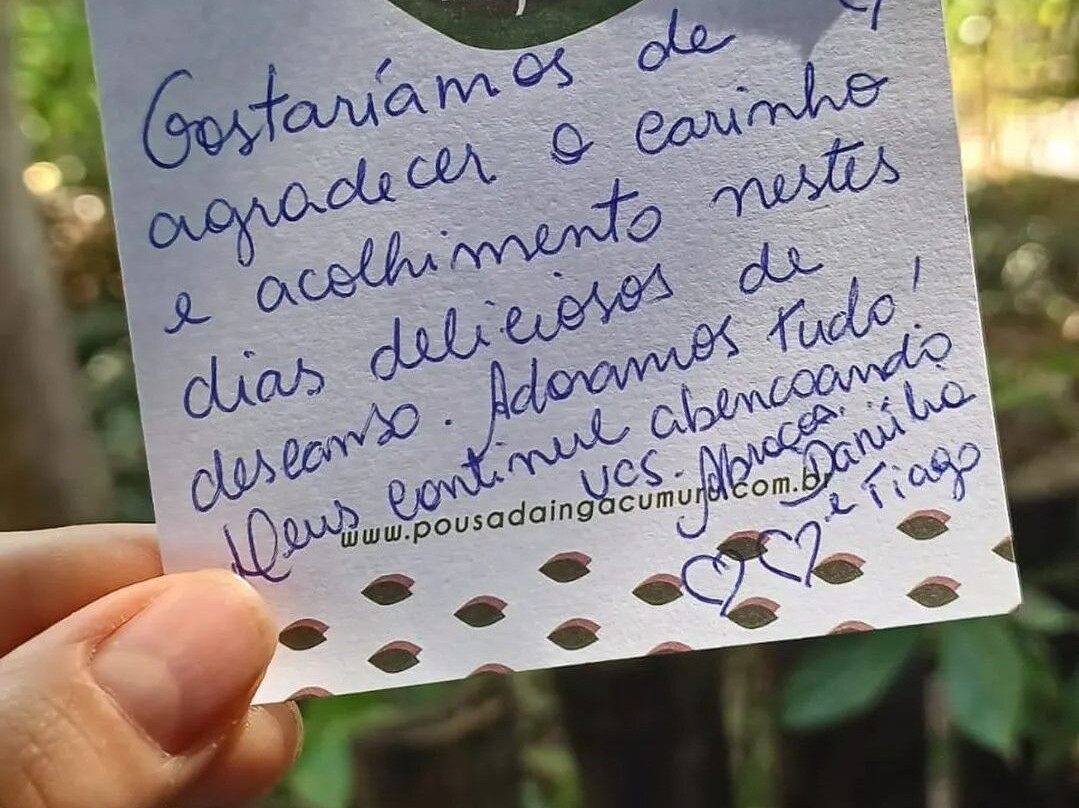 Gostaríamos de
agradecer o carinho
e acolhimento nestes
dias deliciosos de
descanso. Adoramos tudo!
Deus continue abencoando
vcs. Abraços.
www.pousadaingacumuru.com.br
e Tiago